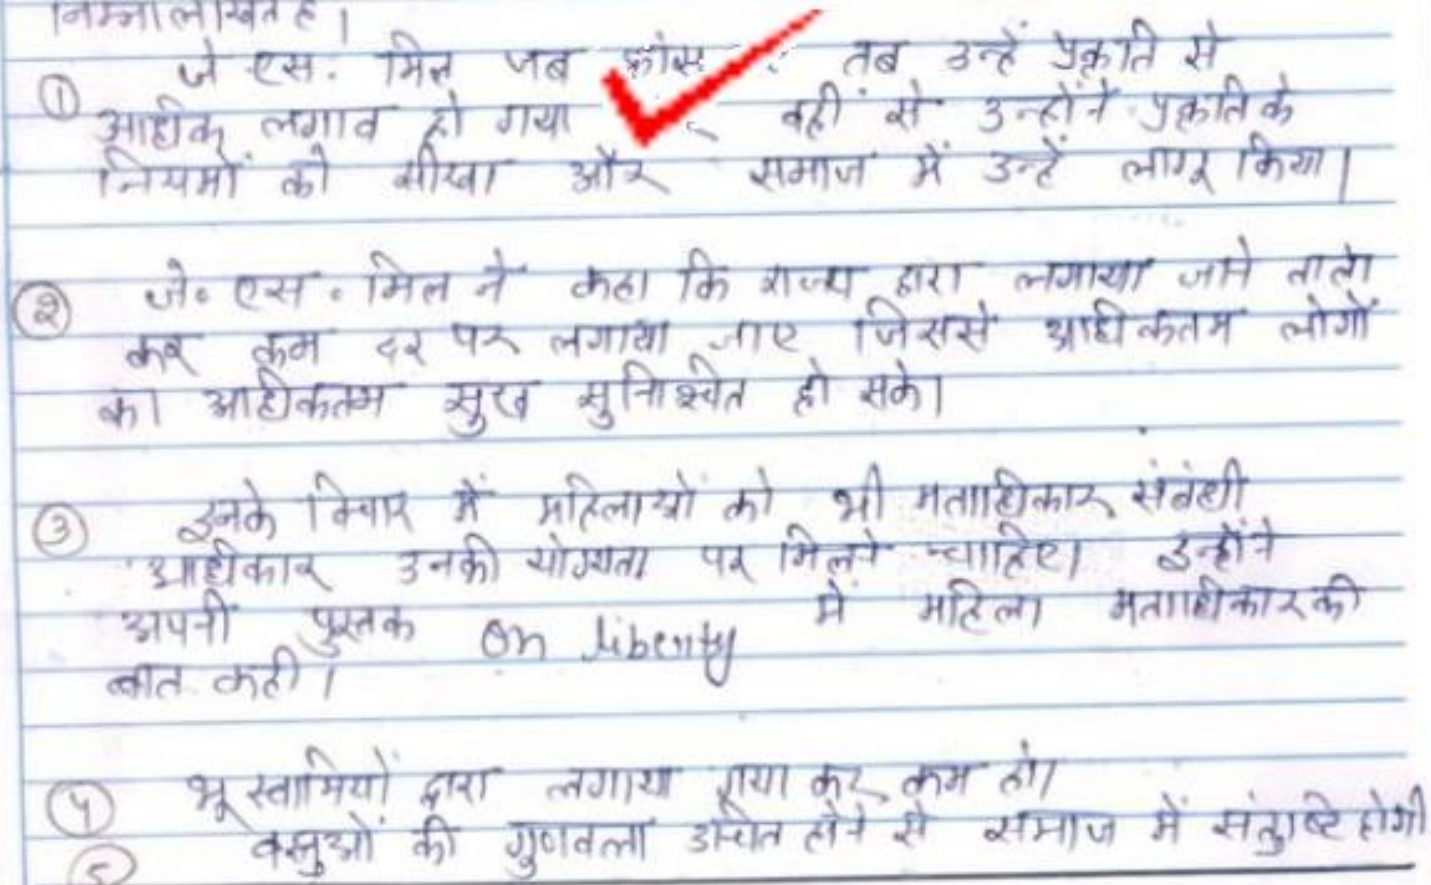 निम्नालिखित है।
① जे एस. मिल जब फ्रांस तब उन्हें प्रकृति से
अधिक लगाव हो गया वहीं से उन्होंने प्रकृति के
नियमों को सीखा और समाज में उन्हें लागू किया।
② जे. एस. मिल ने कहा कि राज्य द्वारा लगाया जाने वाला
कर कम दर पर लगाया जाए जिससे अधिकतम लोगों
का अधिकतम सुख सुनिश्चित हो सके।
③ इनके विचार में महिलाओं को भी मताधिकार संबंधी
अधिकार उनकी योग्यता पर मिलने चाहिए। इन्होंने
अपनी पुस्तक On liberty में महिला मताधिकार की
बात कही।
④ भू स्वामियों द्वारा लगाया गया कर कम हो।
⑤ वस्तुओं की गुणवत्ता उचित होने से समाज में संतुष्टि होगी